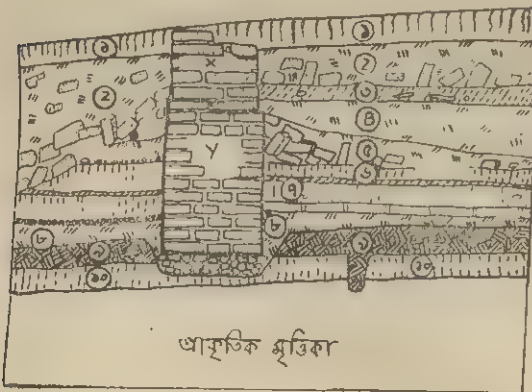 ১ ১
X ২
২ ৩
৪
Y ৫
৬
৭
৮ ৮
৯ ৯
১০ ১০
প্রাকৃতিক মৃত্তিকা